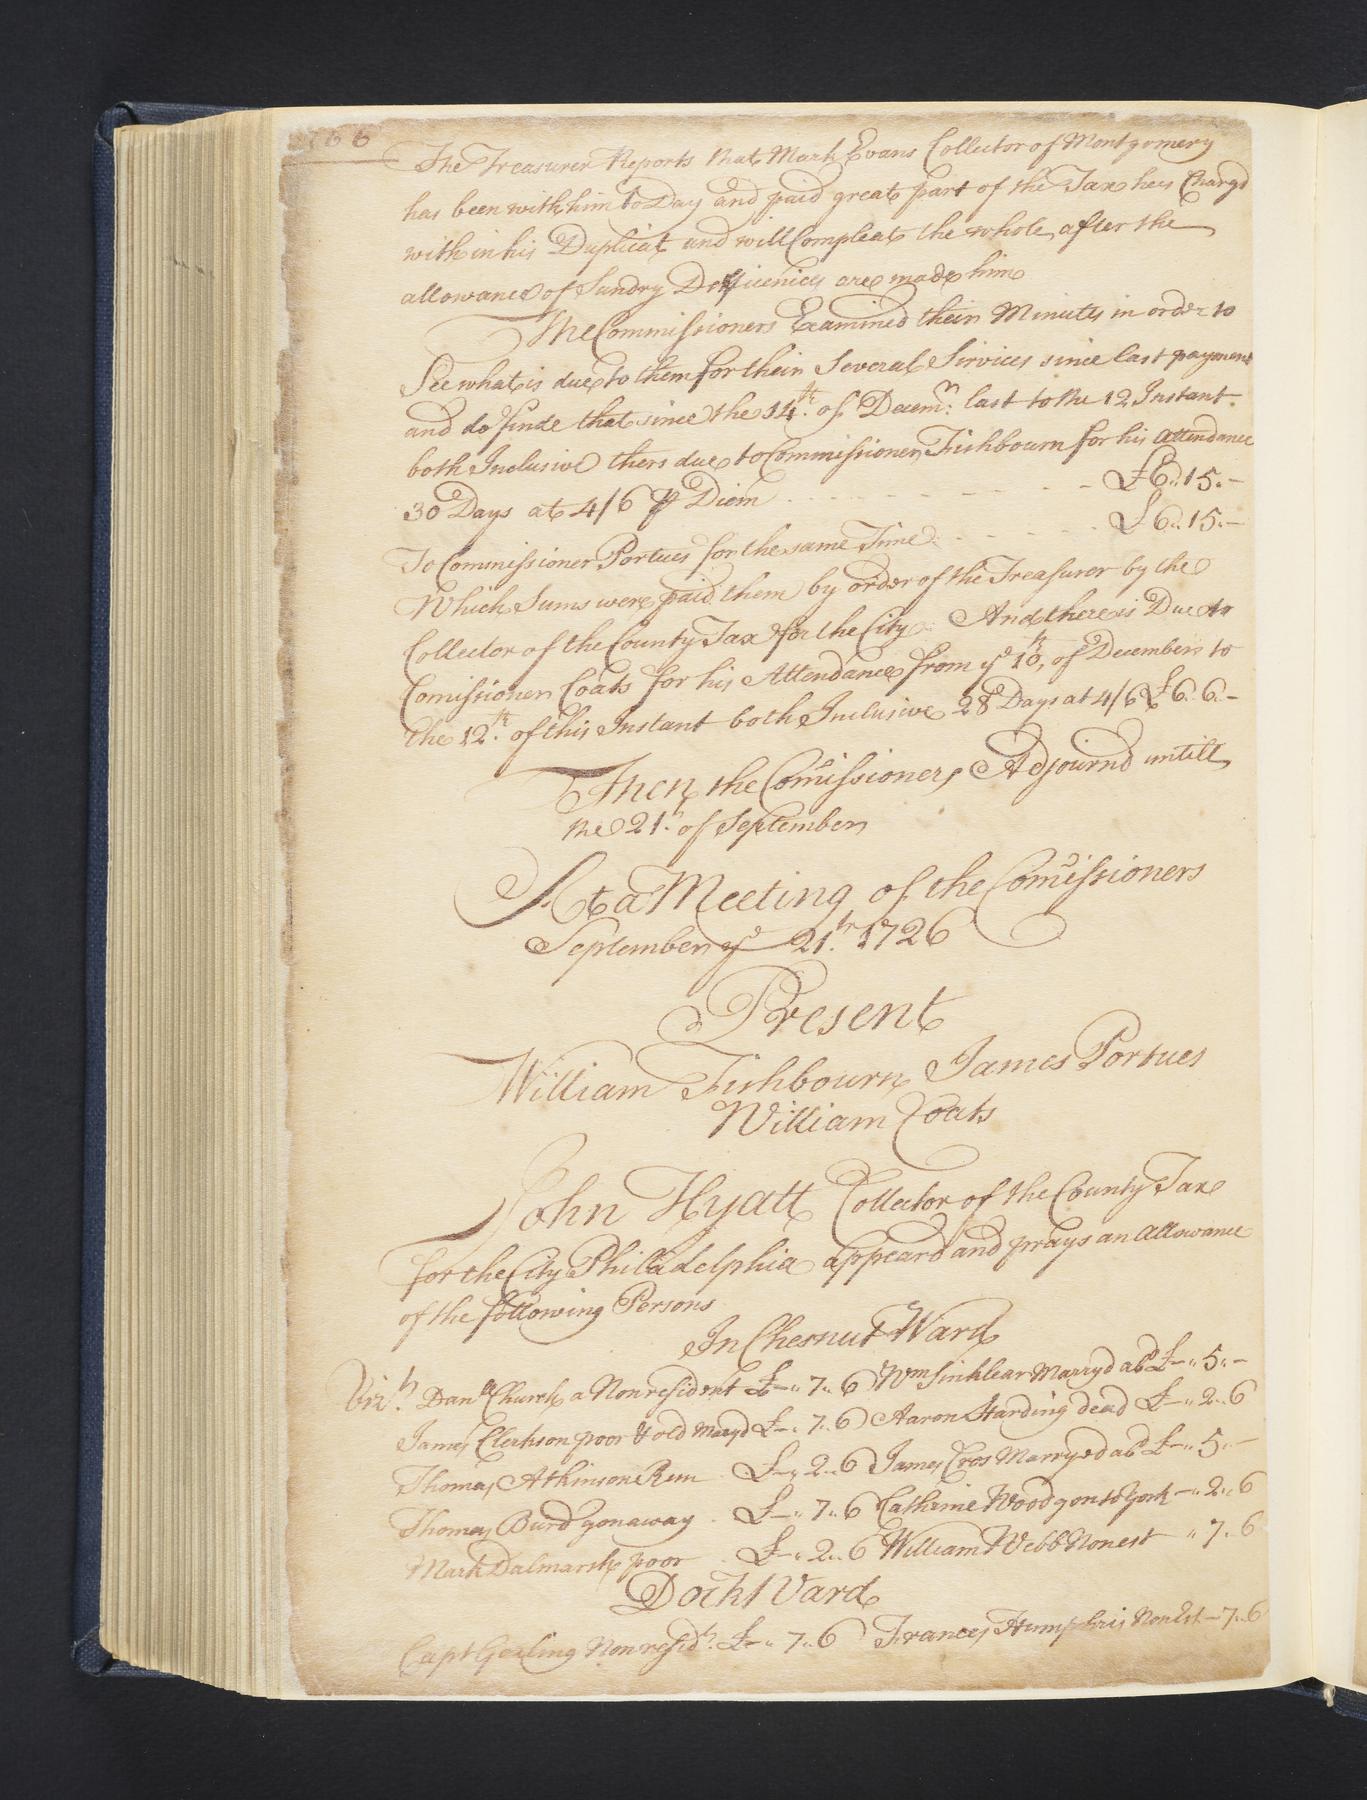 166
The Treasurer Reports that Mark Evans Collector of Montgomery
has been with him to Day and paid great part of the Tax hees Chargd
with in his Duplicat and will Compleat the whole after the
allowance of Sundry Deficienicies are made him
The Commissioners Examined their Minutes in order to
See what is due to them for their Several Services since last payment
and do finde that since the 14th. of Decemr: last to the 12 Instant
both Inclusive thers due to Commissioner Fishbourn for his attendance
30 Days at 4/6 ⅌ Diem - - - - - - £6..15.-
To Commissioner Portues for the same Time - - - - £6..15.-
Which Sums were paid them by order of the Treasurer by the
Collector of the County Tax for the City And there is Due to
Comissioner Coats for his Attendance from ye 10th, of December to
the 12th. of this Instant both Inclusive 28 Days at 4/6 £6..6.-
Then the Comissioners Adjournd untill
the 21th. of September
At a Meeting of the Comissioners
September ye 21th. 1726
Present
William Fishbourn James Portues
William Coats
John Hyatt Collector of the County Tax
for the City Philadelphia appeard and prays an allowance
of the following Persons
In Chesnut Ward
Vizt. Danll Church a Non resident £-..7..6 Wm Sinklear Marryd abd £-..5..-
James Clerkson poor & old Maryd £-..7..6 Aaron Harding dead £-..2..6
Thomas Atkinson Run £-..2..6 James Cros Marryed abd £-..5..-
Thomas Burd gon away £-..7..6 Catharine Wood gon to York -..2..6
Mark Dalmarsh poor £-..2..6 William Webb Nonest ..7..6
Dock Ward
Capt Gosling Non residt. £-..7..6 Frances Humphris Non Est -7..6